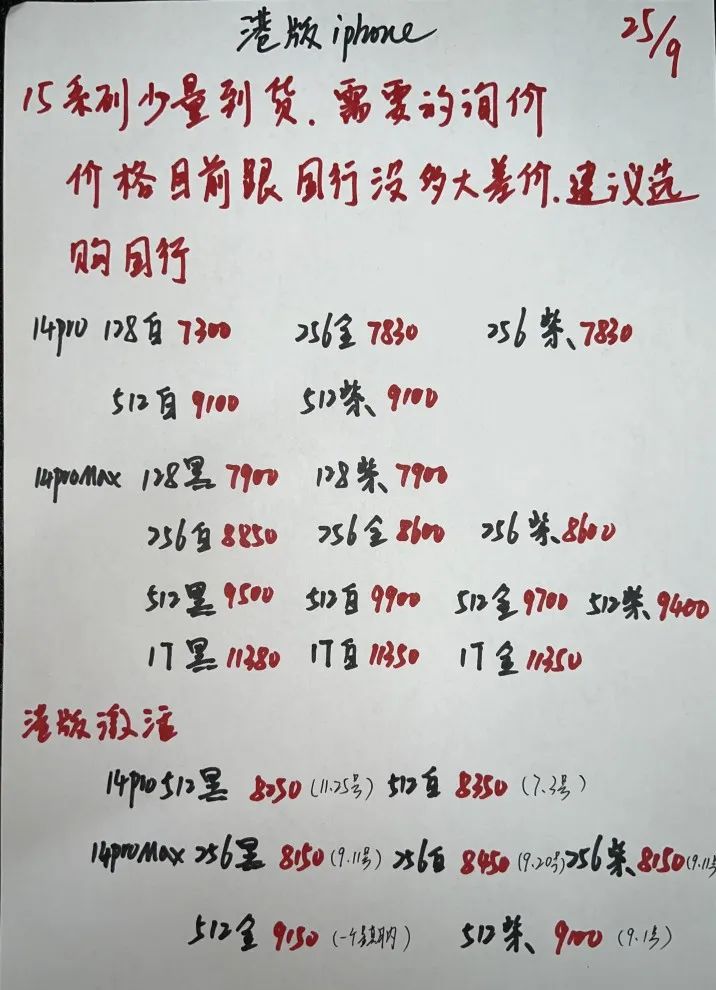 港版iphone 25/9
15系列少量到货.需要的询价
价格目前跟国行没多大差价.建议选
购国行
14pro 128白7300 256金7830 256紫、7830
512白9100 512紫、9100
14proMax 128黑7900 128紫、7900
256白8850 256金8600 256紫、8600
512黑9500 512白9900 512金9700 512紫、9400
1T黑11380 1T白11350 1T金11350
港版激活
14pro512黑 8250(11.25号) 512白 8350(7.3号)
14proMax 256黑 8150(9.11号) 256白 8450(9.20号) 256紫、8150(9.11号
512金 9150(一个星期内) 512紫、9100(9.1号)